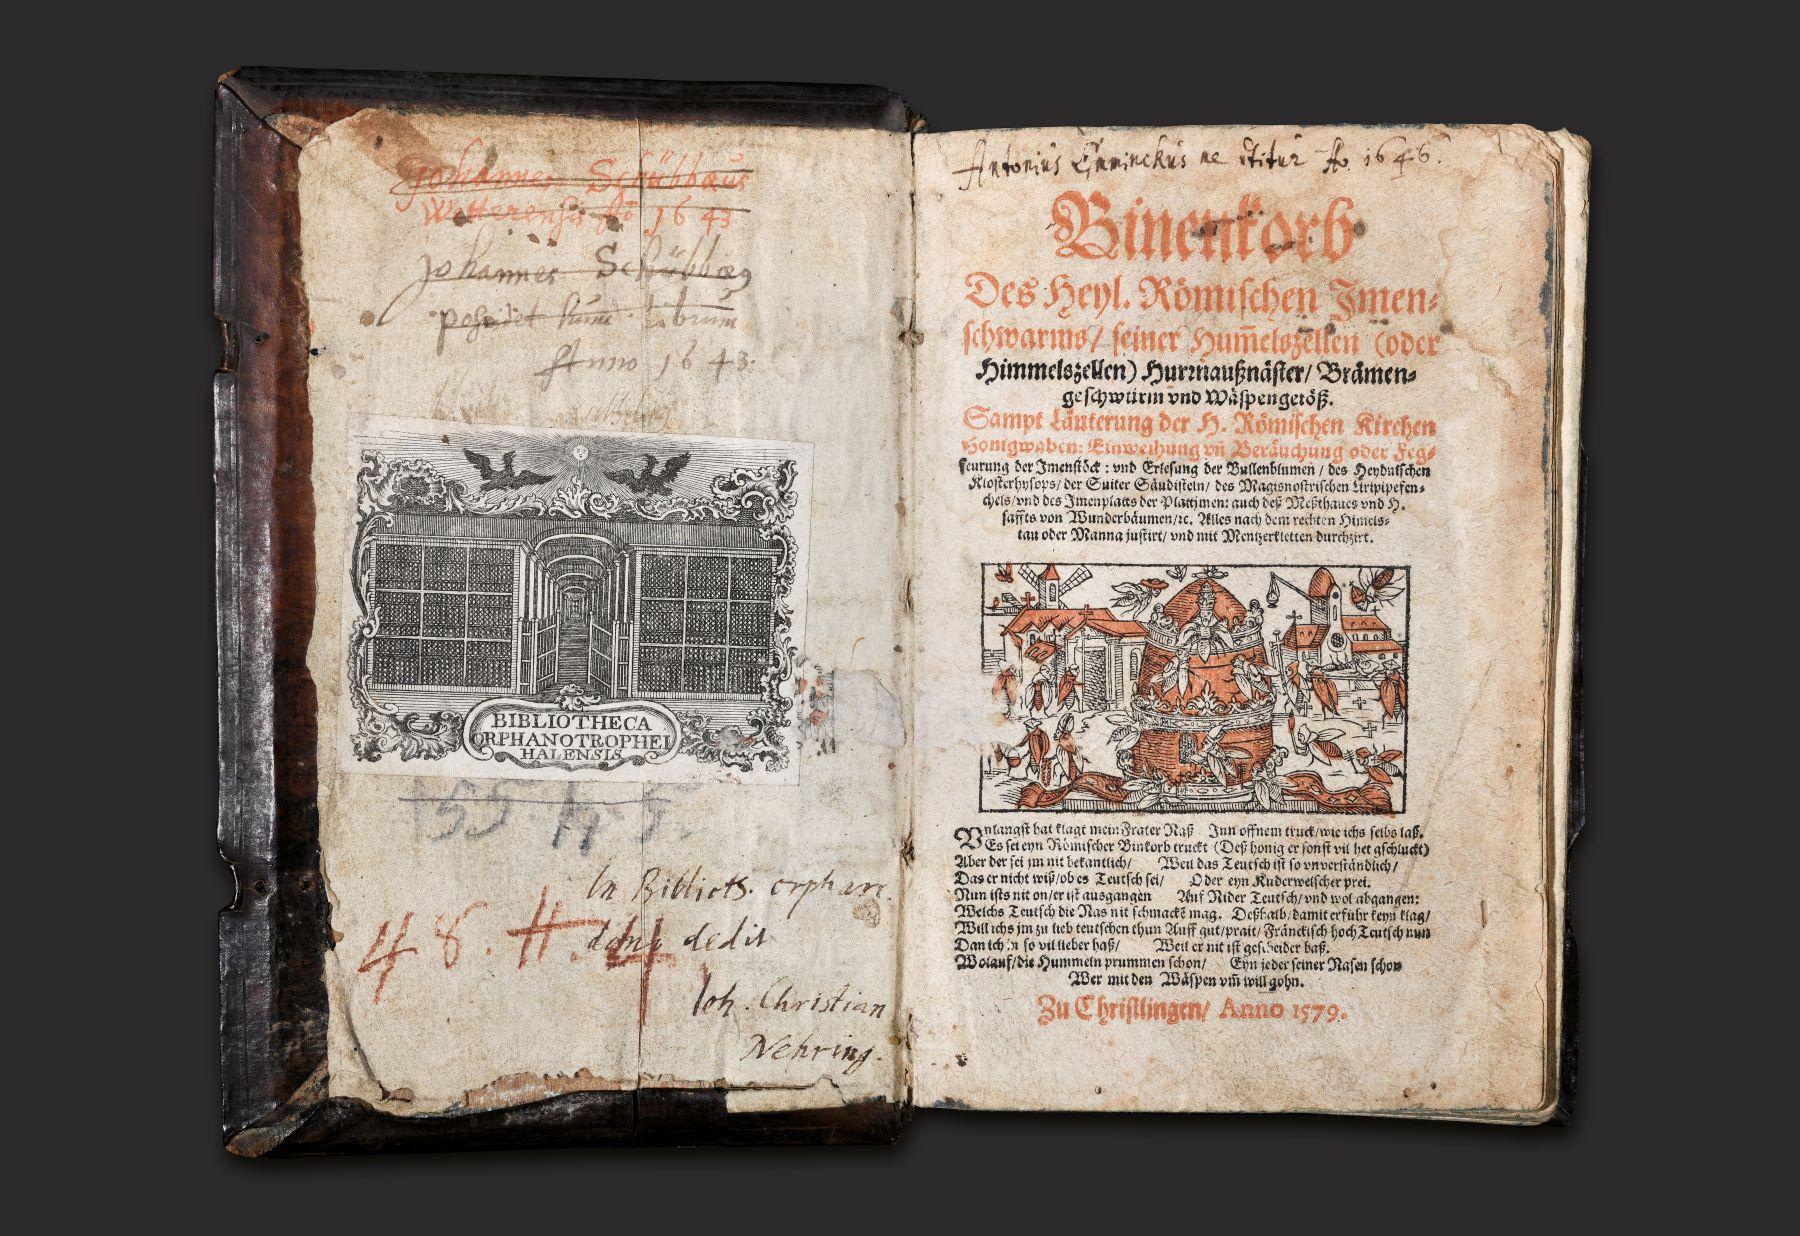 Johannes Schübbæus
Wetterensis Aõ 1643
Johannes Schübbæg
Anno 1643.
BIBLIOTHECA
ORPHANOTROPHEI
HALENSIS
155. H. 5.
In Biblioth. orphan.
48. H. 4
dedit
Ioh. Christian
Nehring.
Antonius me Aõ 1646.
Binenkorb
Des Heyl. Römischen Jmen-
schwarms / seiner Hum̃elszellen (oder
Himmelszellen) Hurrnaußnäster / Brämen-
geschwürm vnd Wäspengetöß.
Sampt Läuterung der H. Römischen Kirchen
Honigwaben: Einweihung vñ Beräuchung oder Feg-
feurung der Jmenstöck: vnd Erlesung der Bullenblumen / des Heydnischen
Klosterhysops / der Suiter Säudisteln / des Magisnostrischen Liripipefen-
chels / vnd des Jmenplatts der Plattimen: auch deß Meßthaues vnd H.
saffts von Wunderbäumen / ꝛc. Alles nach dem rechten Himels-
tau oder Manna justirt / vnd mit Mentzerkletten durchzirt.
VNlangst hat klagt mein Frater Naß Jnn offnem truck / wie ichs selbs laß.
Es sei eyn Römischer Binkorb truckt (Deß honig er sonst vil het gschluckt)
Aber der sei jm nit bekantlich / Weil das Teutsch ist so vnverständlich /
Das er nicht wiß / ob es Teutsch sei / Oder eyn Kuderwelscher prei.
Nun ists nit on / er ist ausgangen Auf Nider Teutsch / vnd wol abgangen:
Welchs Teutsch die Nas nit schmackẽ mag. Deßhalb / damit er führ keyn klag /
Will ichs jm zu lieb teutschen thun Auff gut / prait / Fränckisch hoch Teutsch nun
Dan ich jn so vil lieber haß / Weil er nit ist gescheider baß.
Wolauf / die Hummeln prummen schon / Eyn jeder seiner Nasen schon
Wer mit den Wäspen vm̃ will gohn.
Zu Christlingen / Anno 1579.